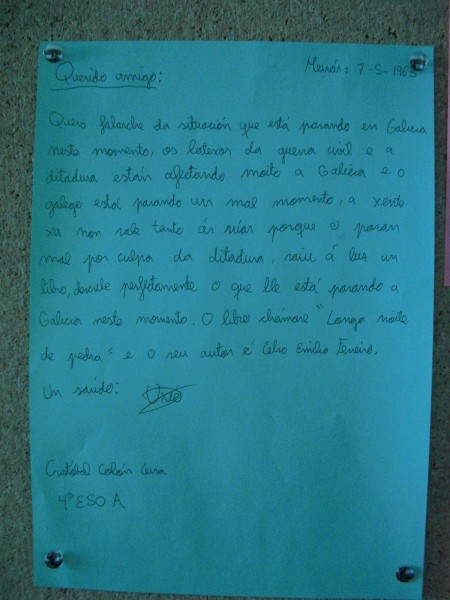 Querido amigo:
Meirás: 7-5-1963
Quero falarche da situación que está pasando en Galicia
neste momento, os latexos da guerra civil e a
ditadura están afectando moito a Galicia e o
galego está pasando un mal momento, a xente
xa non sale tanto ás rúas porque o pasan
mal por culpa da ditadura, saiu á luz un
libro, describe perfectamente o que lle está pasando a
Galicia neste momento. O libro chámase "Longa noite
de pedra" e o seu autor é Celso Emilio Ferreiro.
Un saúdo:
Cristóbal Colón
4º ESO A